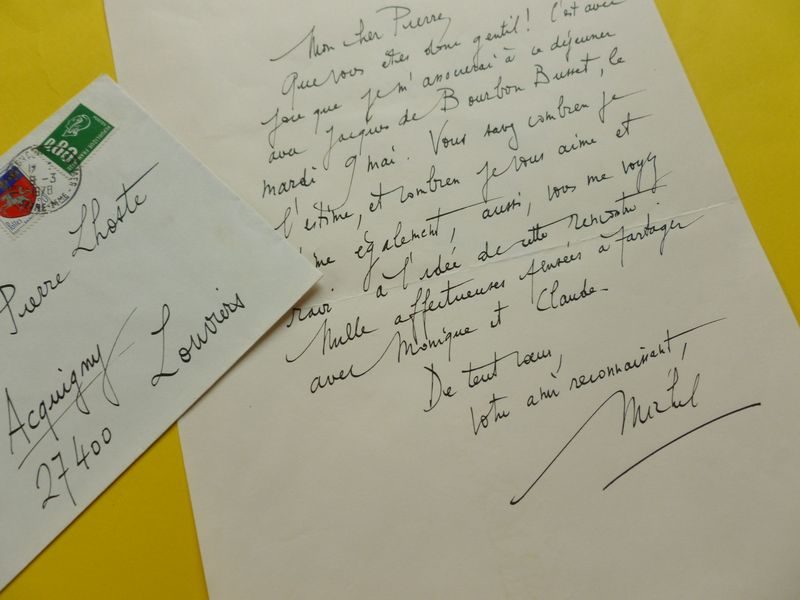 Mon cher Pierre,
Que vous êtes donc gentil! C'est avec
joie que je m'associerai à ce déjeuner
avec Jacques de Bourbon Busset, le
mardi 9 mai. Vous savez combien je
l'estime, et combien je vous aime et
également, aussi, vous me voyez
ravi à l'idée de cette rencontre.
Mille affectueuses pensées à partager
avec Monique et Claude.
De tout cœur,
votre ami reconnaissant,
Michel
0,80
1978
Pierre Lhoste
Acquigny - Louviers
27400